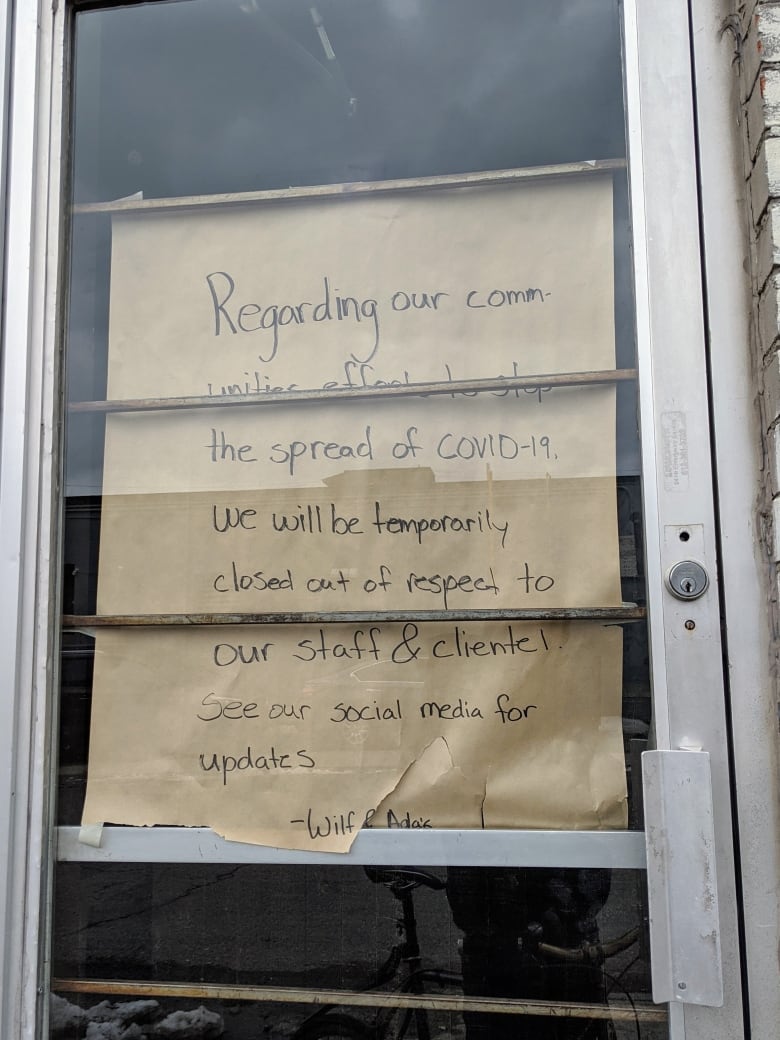 Regarding our comm-
unities effort to stop
the spread of COVID-19.
We will be temporarily
closed out of respect to
our staff & clientel.
See our social media for
updates
-Wilf & Ada's